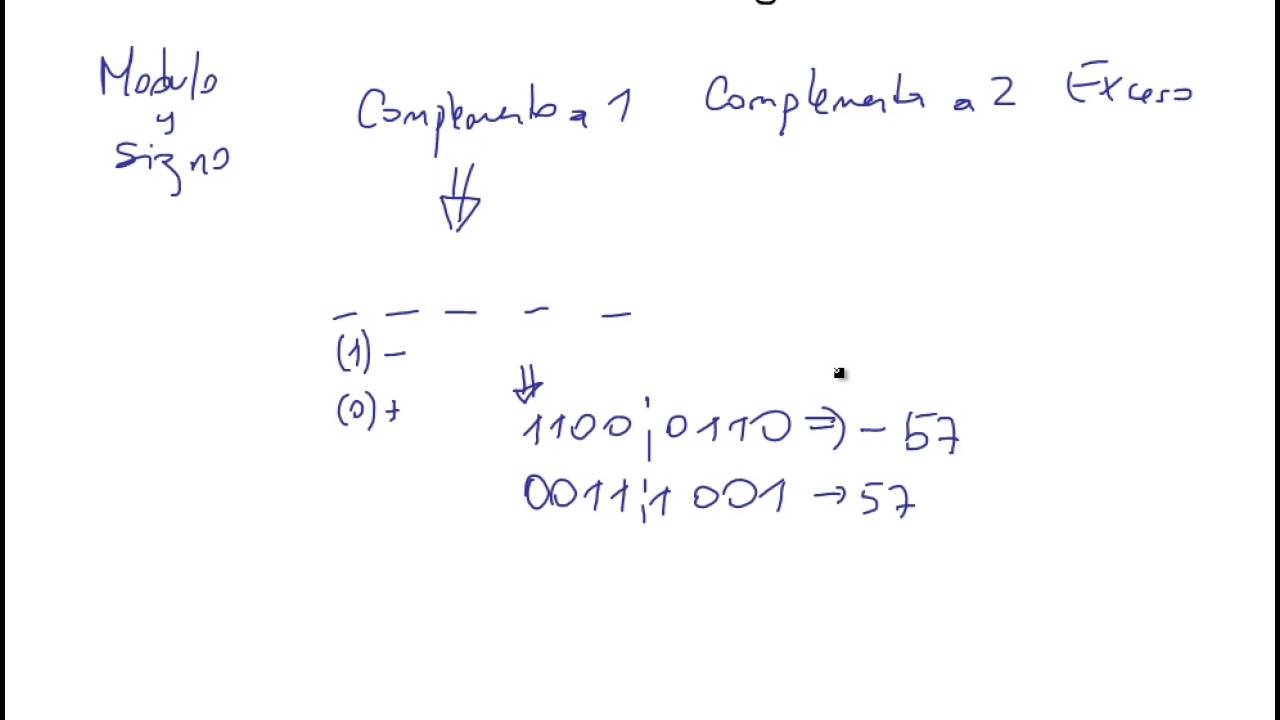 Modulo
y
Signo
Complemento a 1
Complemento a 2
Exceso
(1) -
(0) +
1100¦0110 ⇒ - 57
0011¦1001 → 57